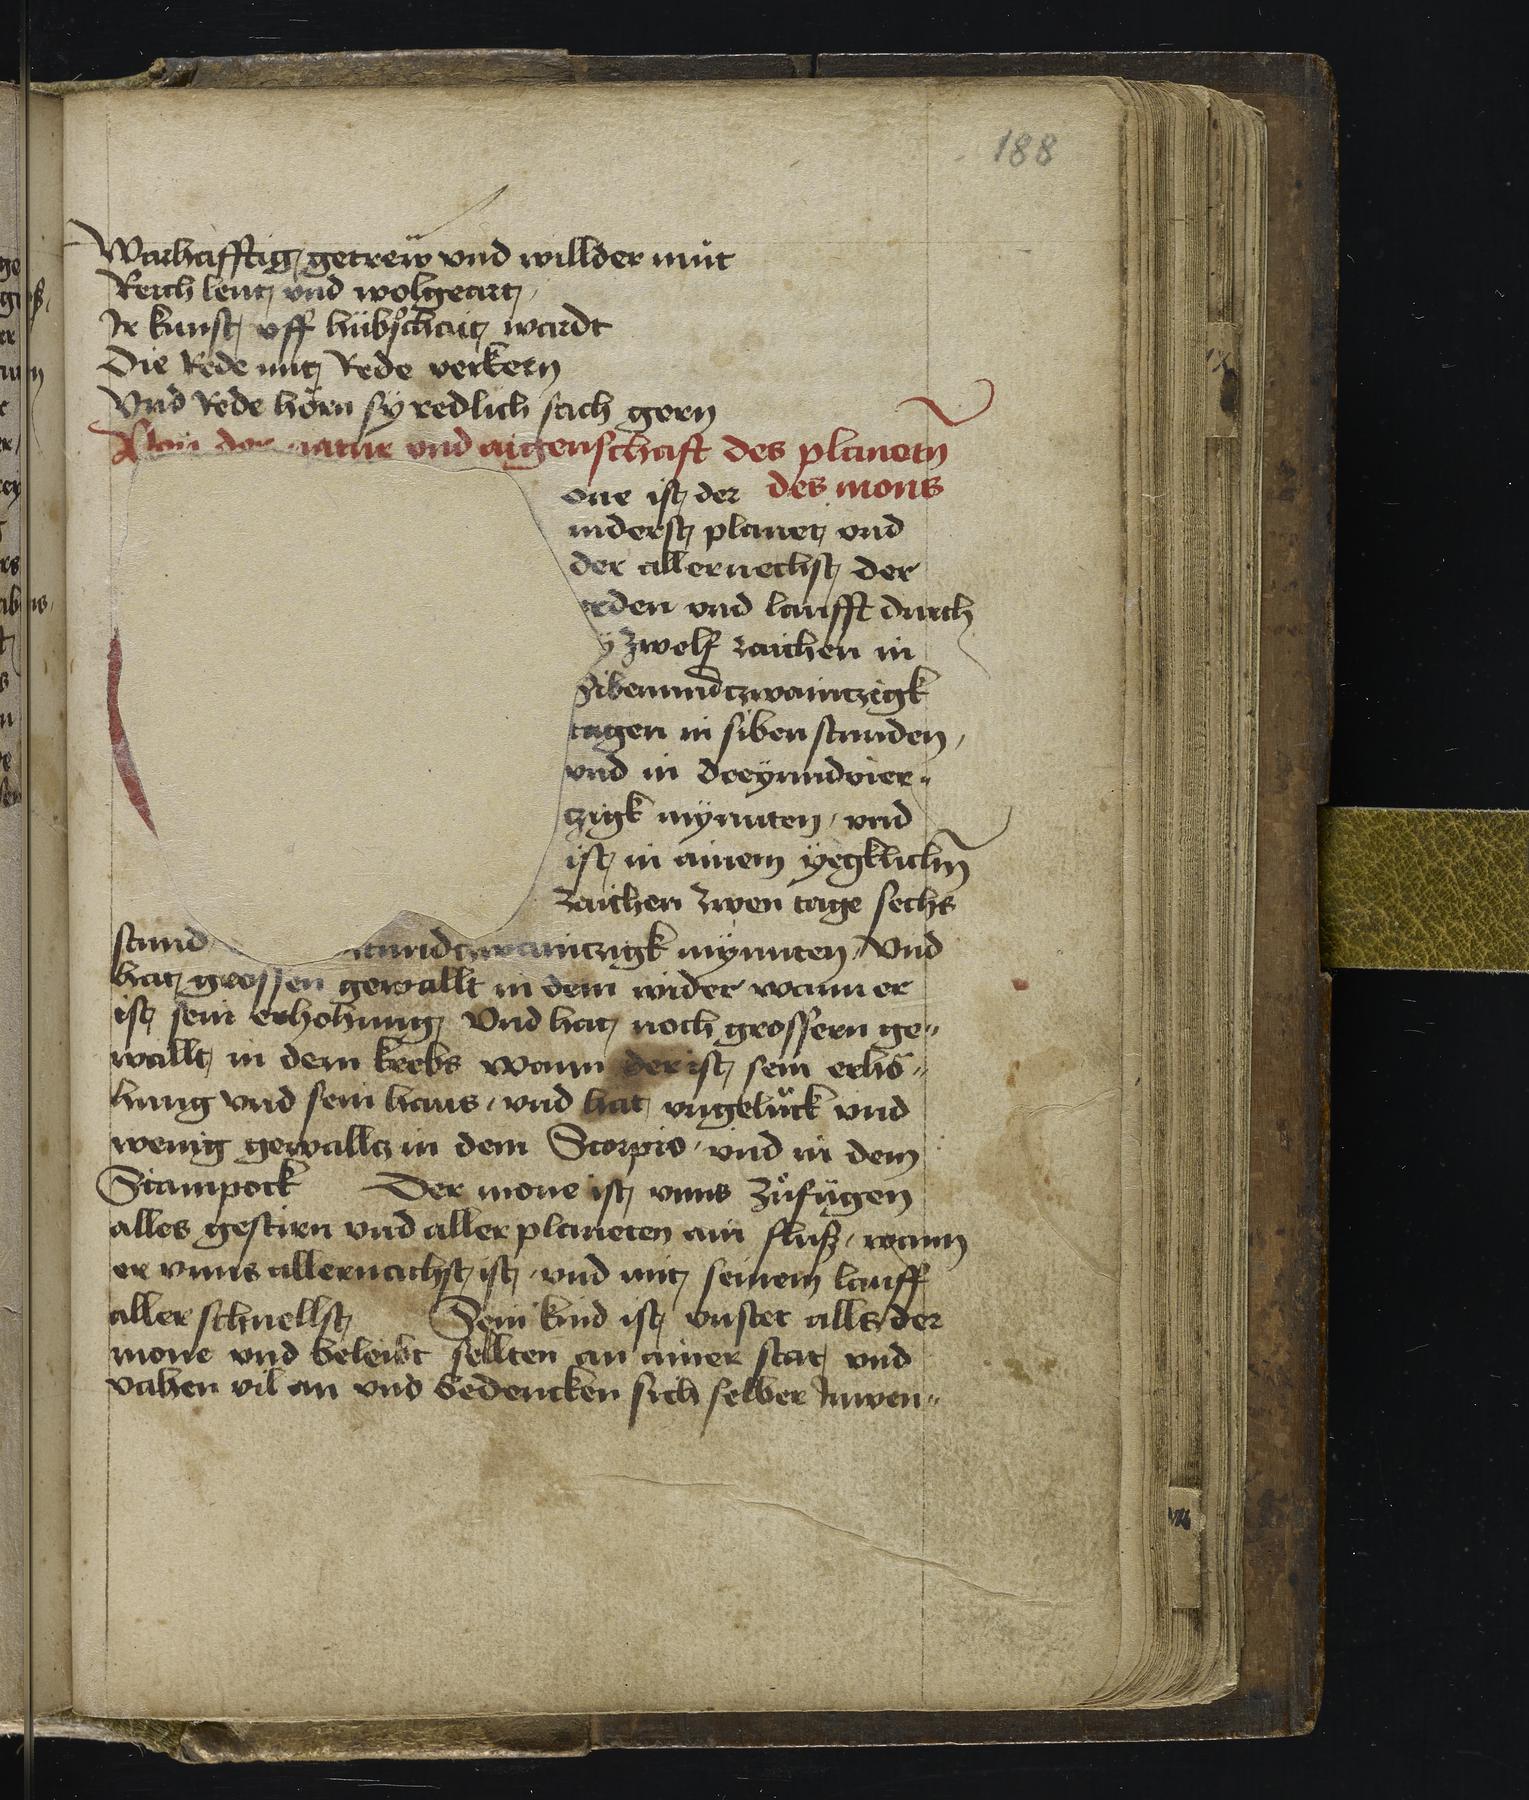 188
Warhafftig getreẅ vnd willder mût
Reich lent vnd wolgeart
Ir kunst vff hübschait wardt
Die Rede mit Rede verkern
Vnd Rede hörn sy redlich sach gern
Von der natur vnd aigenschaft des planetn
one ist der des mons
inderst planet vnd
der allernechst der
erden vnd laufft durch
y zwelf zaichen in
Sibenundczwainczigk
tagen in siben stunden
vnd in dreyundvier-
czigk mynuten vnd
ist in ainem yegklichn
zaichen zwen tage sechs
stund undczwainczigk mynuten Vnd
hat grossen gewallt in dem wider wann er
ist sein erhohung Vnd hat noch grossern ge-
wallt in dem krebs wann der ist sein erhö-
hung vnd sein haus vnd hat vngelück vnd
wenig gewallt in dem Scorpio vnd in dem
Stainpock Der mone ist vnns zůfügen
alles gestirn vnd aller planeten ain fluß wann
er vnns allernachst ist vnd mit seinem lauff
aller schnellst Sein kind ist vnstet alls der
mone vnd beleibt sellten an ainer stat vnd
vahen vil an vnd bedencken sich selber Inwen-